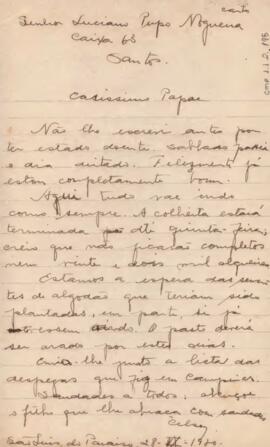 carta
Senhor Luciano Pupo Nogueira
Caixa 68
Santos.
Carissimo Papae
Não lhe escrevi antes por
ter estado doente sabbado
o dia Felizmente já
estou completamente bom.
Aqui tudo vae indo
como sempre. A colheita estará
terminada até quinta-feira,
creio que não ficarão completos
nem vinte e dois mil alqueires
Estamos a espera das
tes de algodão que teriam sido
plantadas, em parte, si já
O pasto deverá
ser arado por estes dias.
Envio-lhe junto a lista das
despezas que fiz em Campinas.
Saudades a todos,
o filho que lhe abraça com saudades
Celso
São Luis do Paraiso, 28-